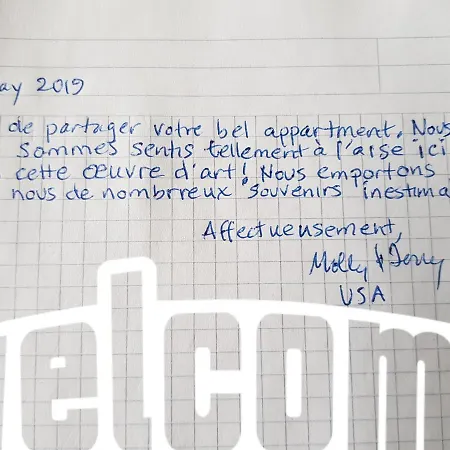 ay 2019
de partager votre bel appartment. Nous
sommes sentis tellement à l'aise ici
cette œuvre d'art! Nous emportons
nous de nombrreux souvenirs inestima
Affectueusement,
Molly & Jerry
USA
elcom